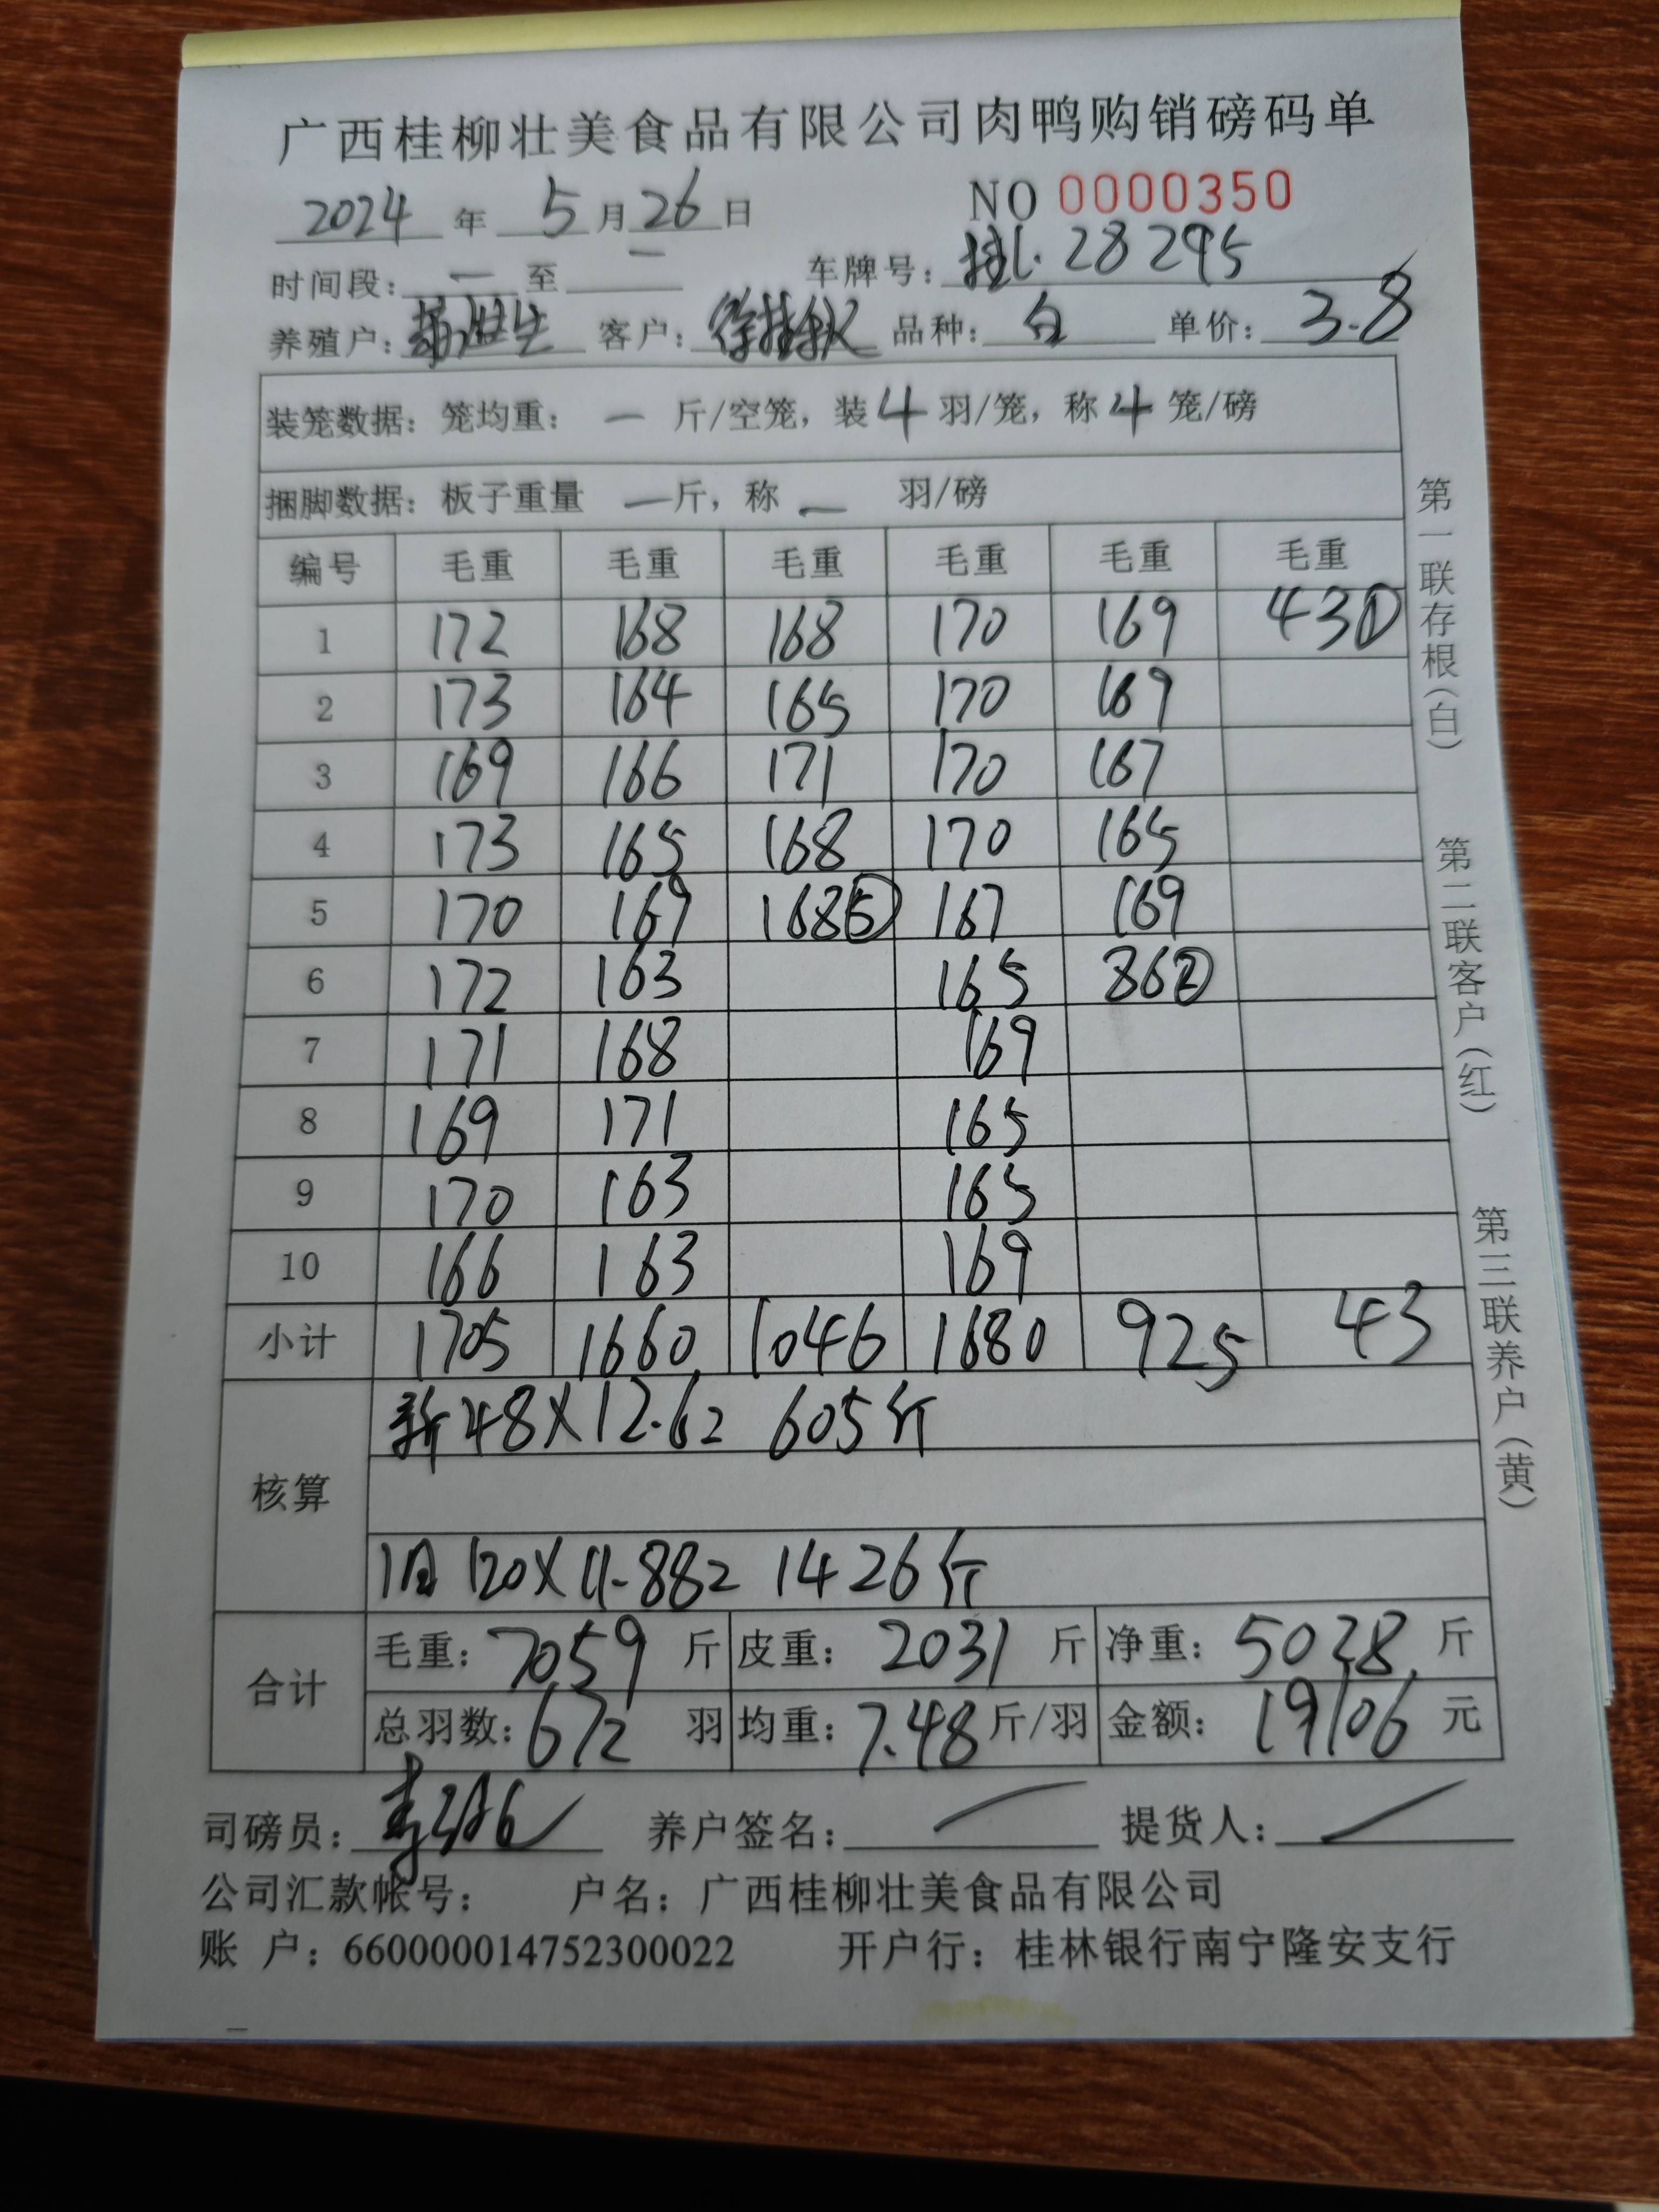 广西桂柳壮美食品有限公司肉鸭购销磅码单
2024年 5月26日 NO 0000350
时间段：一至一 车牌号：桂L·28295
养殖户： 客户：徐桂秋 品种：白 单价：3.8
装笼数据：笼均重：一斤/空笼，装4羽/笼，称4笼/磅
捆脚数据：板子重量一斤，称一羽/磅
编号 毛重 毛重 毛重 毛重 毛重 毛重
1 172 168 168 170 169 43①
2 173 164 165 170 169
3 169 166 171 170 167
4 173 165 168 170 165
5 170 169 168 167 169
6 172 163 165 86②
7 171 168 169
8 169 171 165
9 170 163 165
10 166 163 169
小计 1705 1660 1046 1680 925 43
核算
新48X12.62 605斤
旧120X11.882 1426斤
合计
毛重：7059斤 皮重：2031斤 净重：5028斤
总羽数：672羽 均重：7.48斤/羽 金额：19106元
司磅员： 养户签名： 提货人：
公司汇款帐号： 户名：广西桂柳壮美食品有限公司
账 户：660000014752300022 开户行：桂林银行南宁隆安支行
第一联存根（白）
第二联客户（红）
第三联养户（黄）